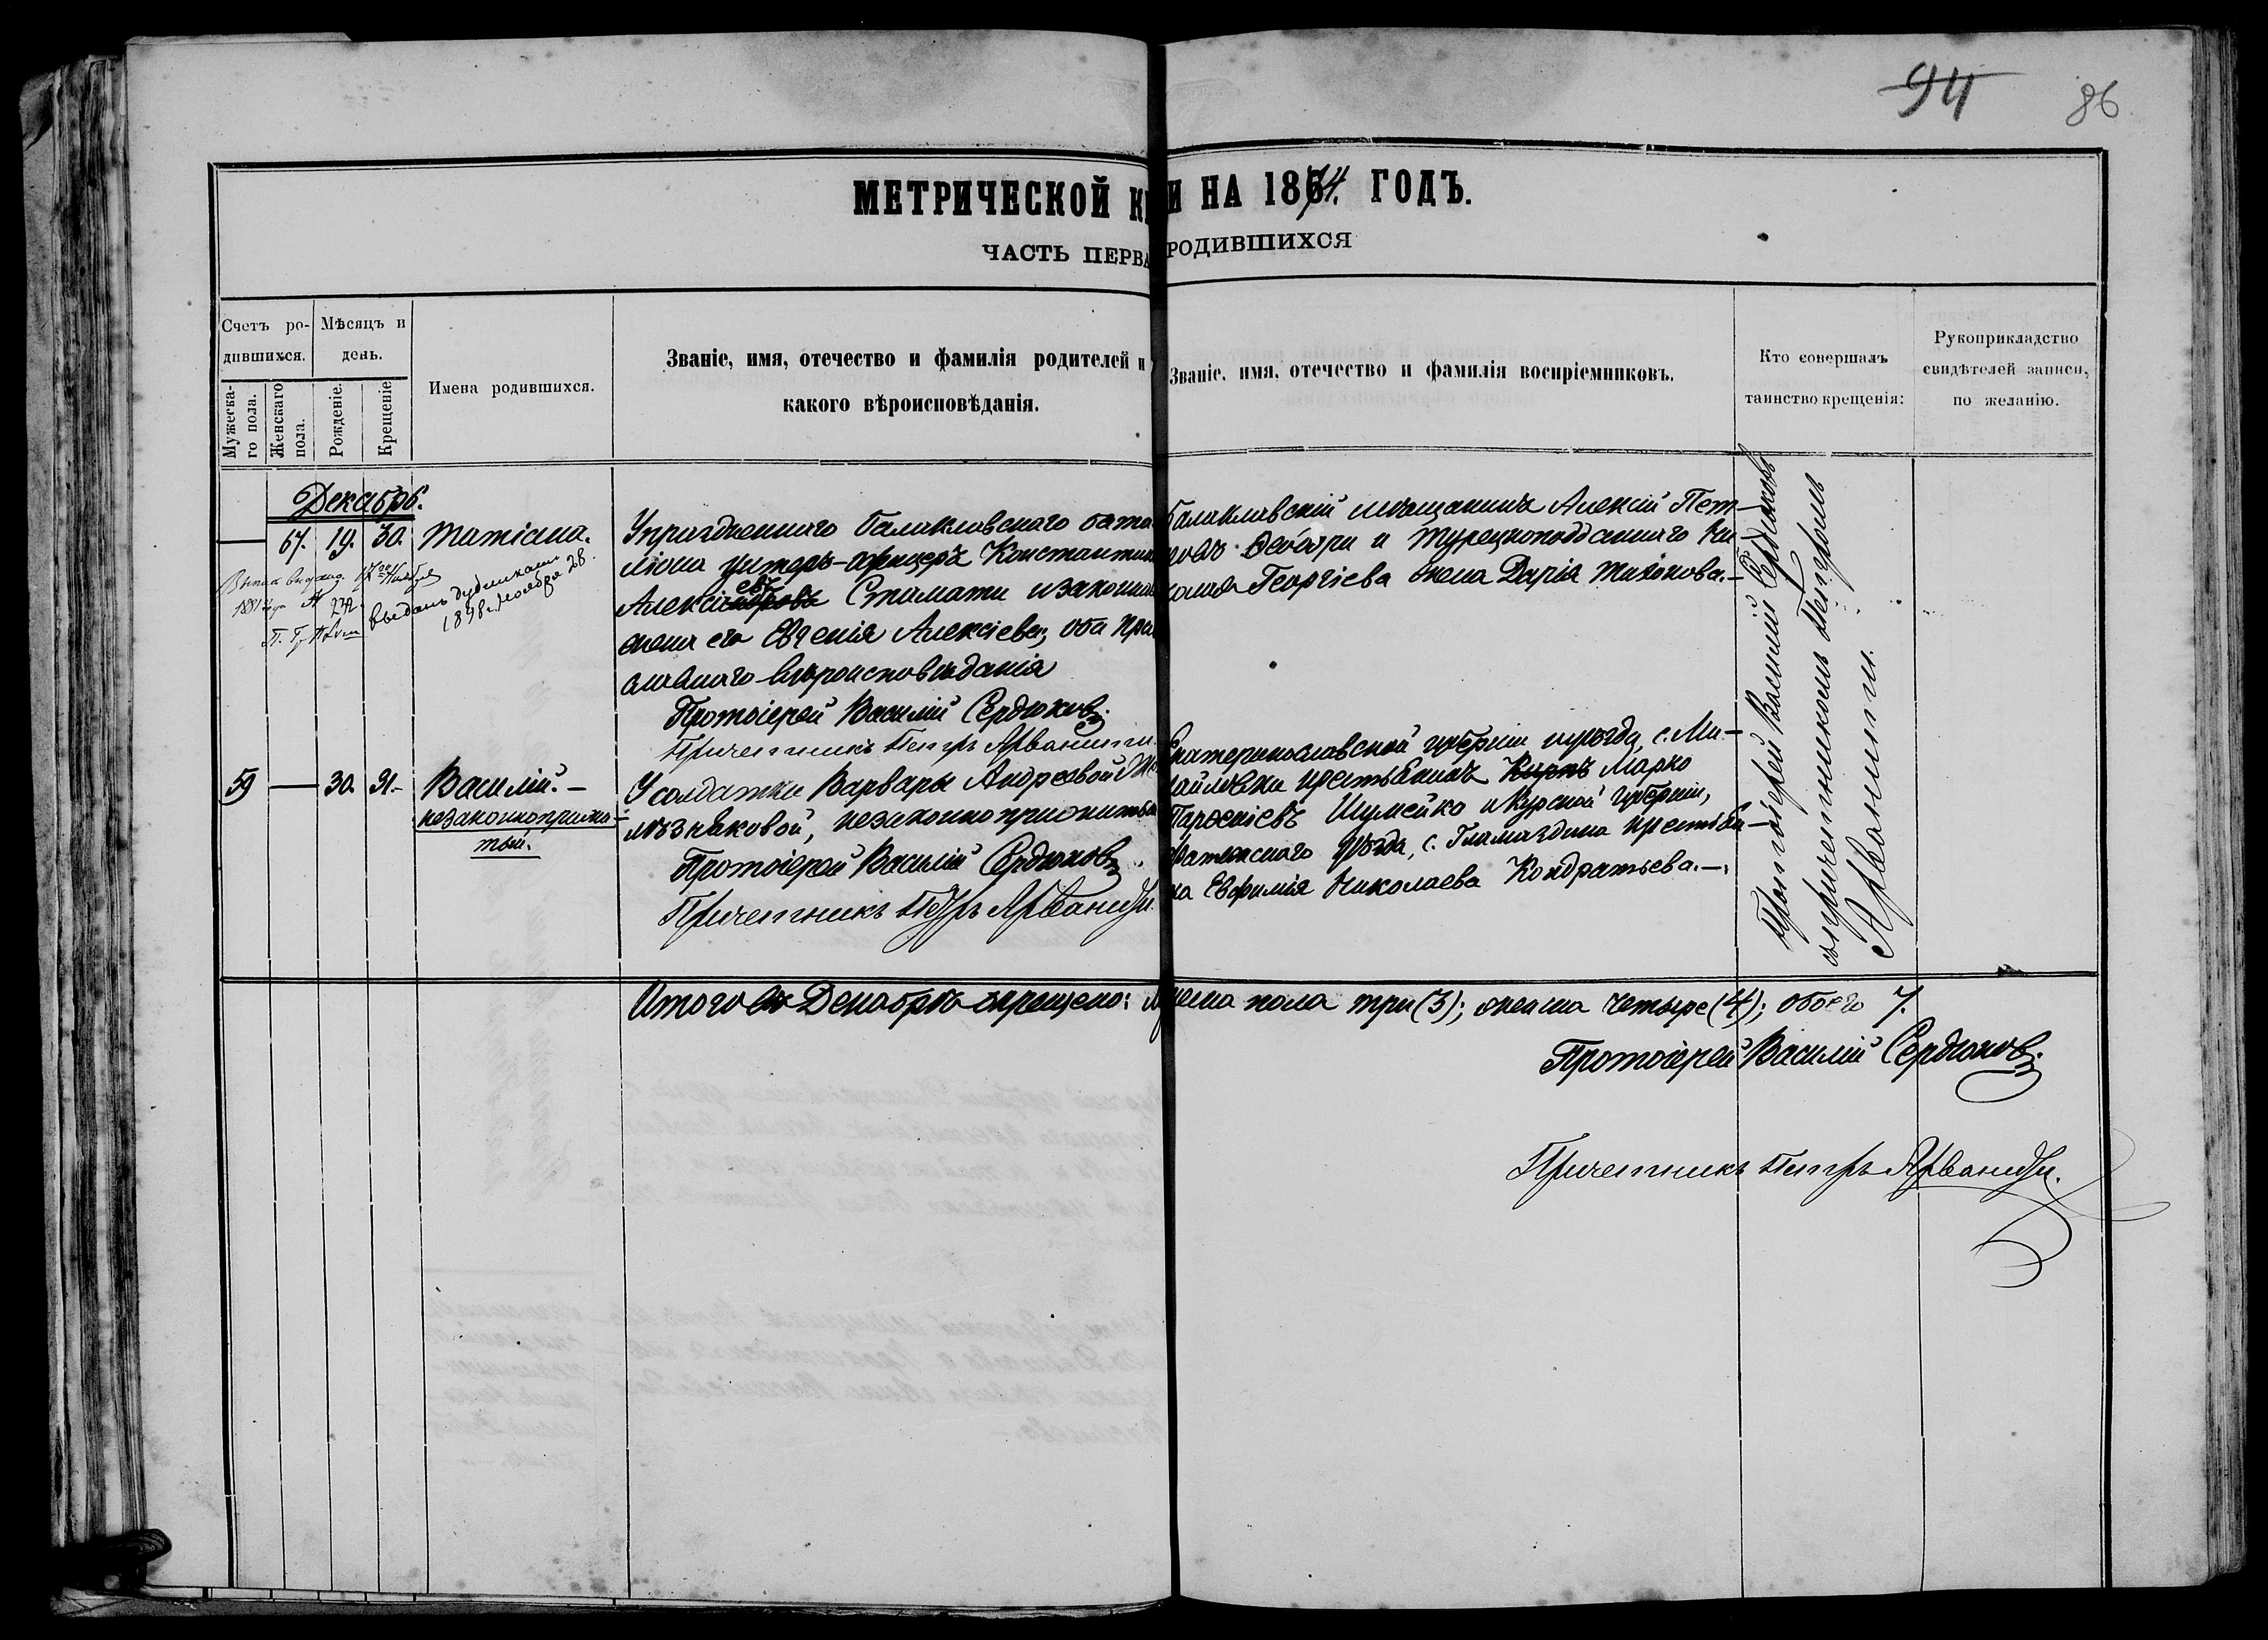 94
86
МЕТРИЧЕСКОЙ К И НА 1874. ГОДЪ.
ЧАСТЬ ПЕРВА РОДИВШИХСЯ
Счетъ ро-
дившихся.
Мужеска-
го пола.
Женскаго
пола.
Мѣсяцъ и
день.
Рожденіе.
Крещеніе.
Имена родившихся.
Званіе, имя, отечество и фамилія родителей и
какого вѣроисповѣданія.
Званіе, имя, отечество и фамилія воспріемниковъ.
Кто совершалъ
таинство крещенія:
Рукоприкладство
свидѣтелей записи,
по желанію.
Декабрь.
67. 19. 30. Татіана.
1881 года
выданъ дубликатъ
1898 г. Ноября 28.
Упраздненнаго балаклавскаго бата
ліона унтеръ-офицеръ Константинъ
Алексіевъ Стамати и законная
жена его Евгенія Алексіева, оба пра
славнаго вѣроисповѣданія
Протоіерей Василій Сердюковъ.
Причетникъ Петръ Арванити.
балаклавскій мѣщанинъ Алексій Пет-
ровъ и турецкоподданнаго Ни
колая Георгіева жена Дарія Тихонова.-
59 — 30. 31.- Василій.-
незаконноприжи-
тый.
У солдатки Варвары Андреевой
мѣзняковой, незаконноприжитый
Протоіерей Василій Сердюковъ.
Причетникъ Петръ Арваниди.
Екатеринославской губерніи уѣзда, с. Ми-
айловки крестьянинъ Марко
Парѳеніевъ Шумейко и Курской губерніи,
Фатежскаго уѣзда, с. Гламаздина крестьян-
ка Евфимія Николаева Кондратьева.-
Протоіерей Василій Сердюковъ
съ причетникомъ Петромъ
Арванити.
Итого въ Декабрѣ окрещено: мужеска пола три (3); женска четыре (4); обоего 7.
Протоіерей Василій Сердюковъ.
Причетникъ Петръ Арваниди.